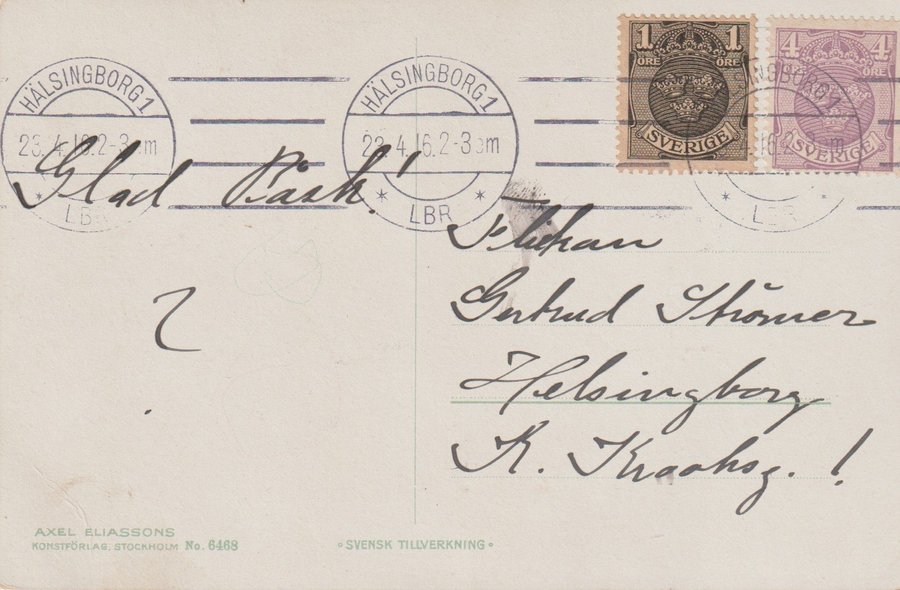 HÄLSINGBORG 1
23.4.16.2-3 m
LBR
HÄLSINGBORG 1
23.4.16.2-3 m
LBR
1 1
ÖRE ÖRE
SVERIGE
4
ÖRE
SVERIGE
Glad Påsk!
?
Flickan
Gertrud Strömer
Helsingborg
K. Krooksg. !
AXEL ELIASSONS
KONSTFÖRLAG, STOCKHOLM No. 6468
SVENSK TILLVERKNING